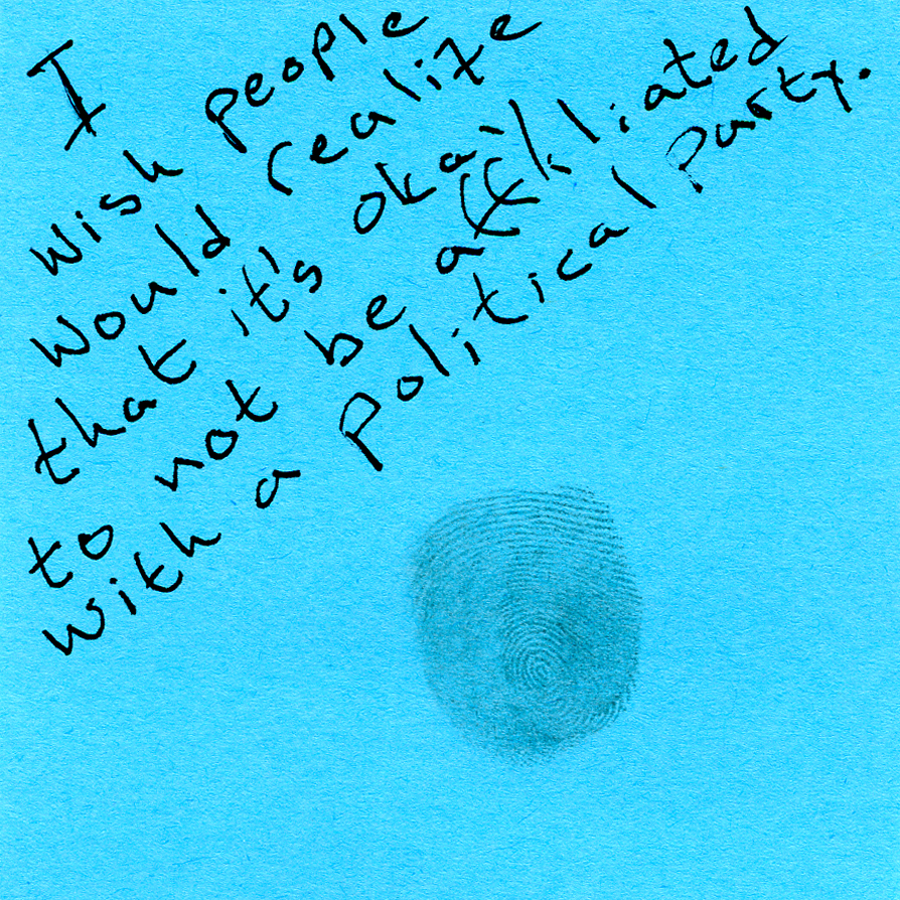 I
wish people
would realize
that it's okay
to not be affiliated
with a political party.